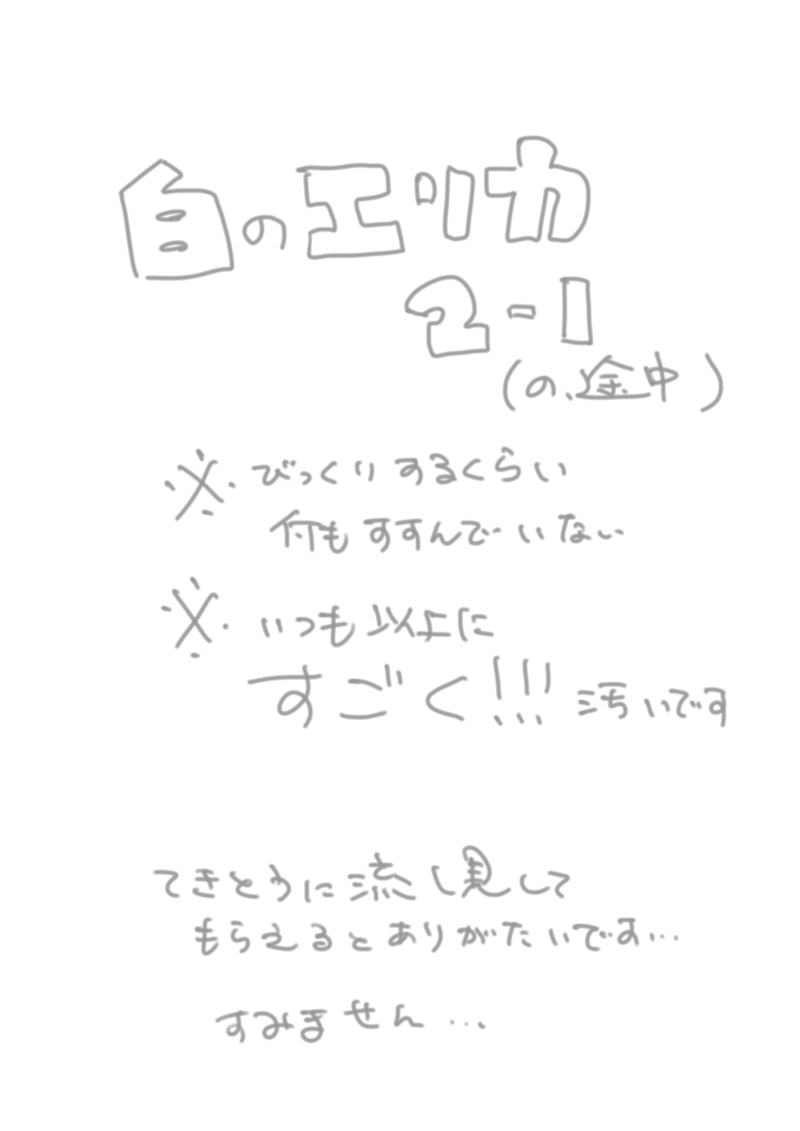 白のエリカ
2-1
(の、途中)
※びっくりするくらい
何もすすんでいない
※いつも以上に
すごく!!!汚いです
てきとうに流し見して
もらえるとありがたいです…
すみません…